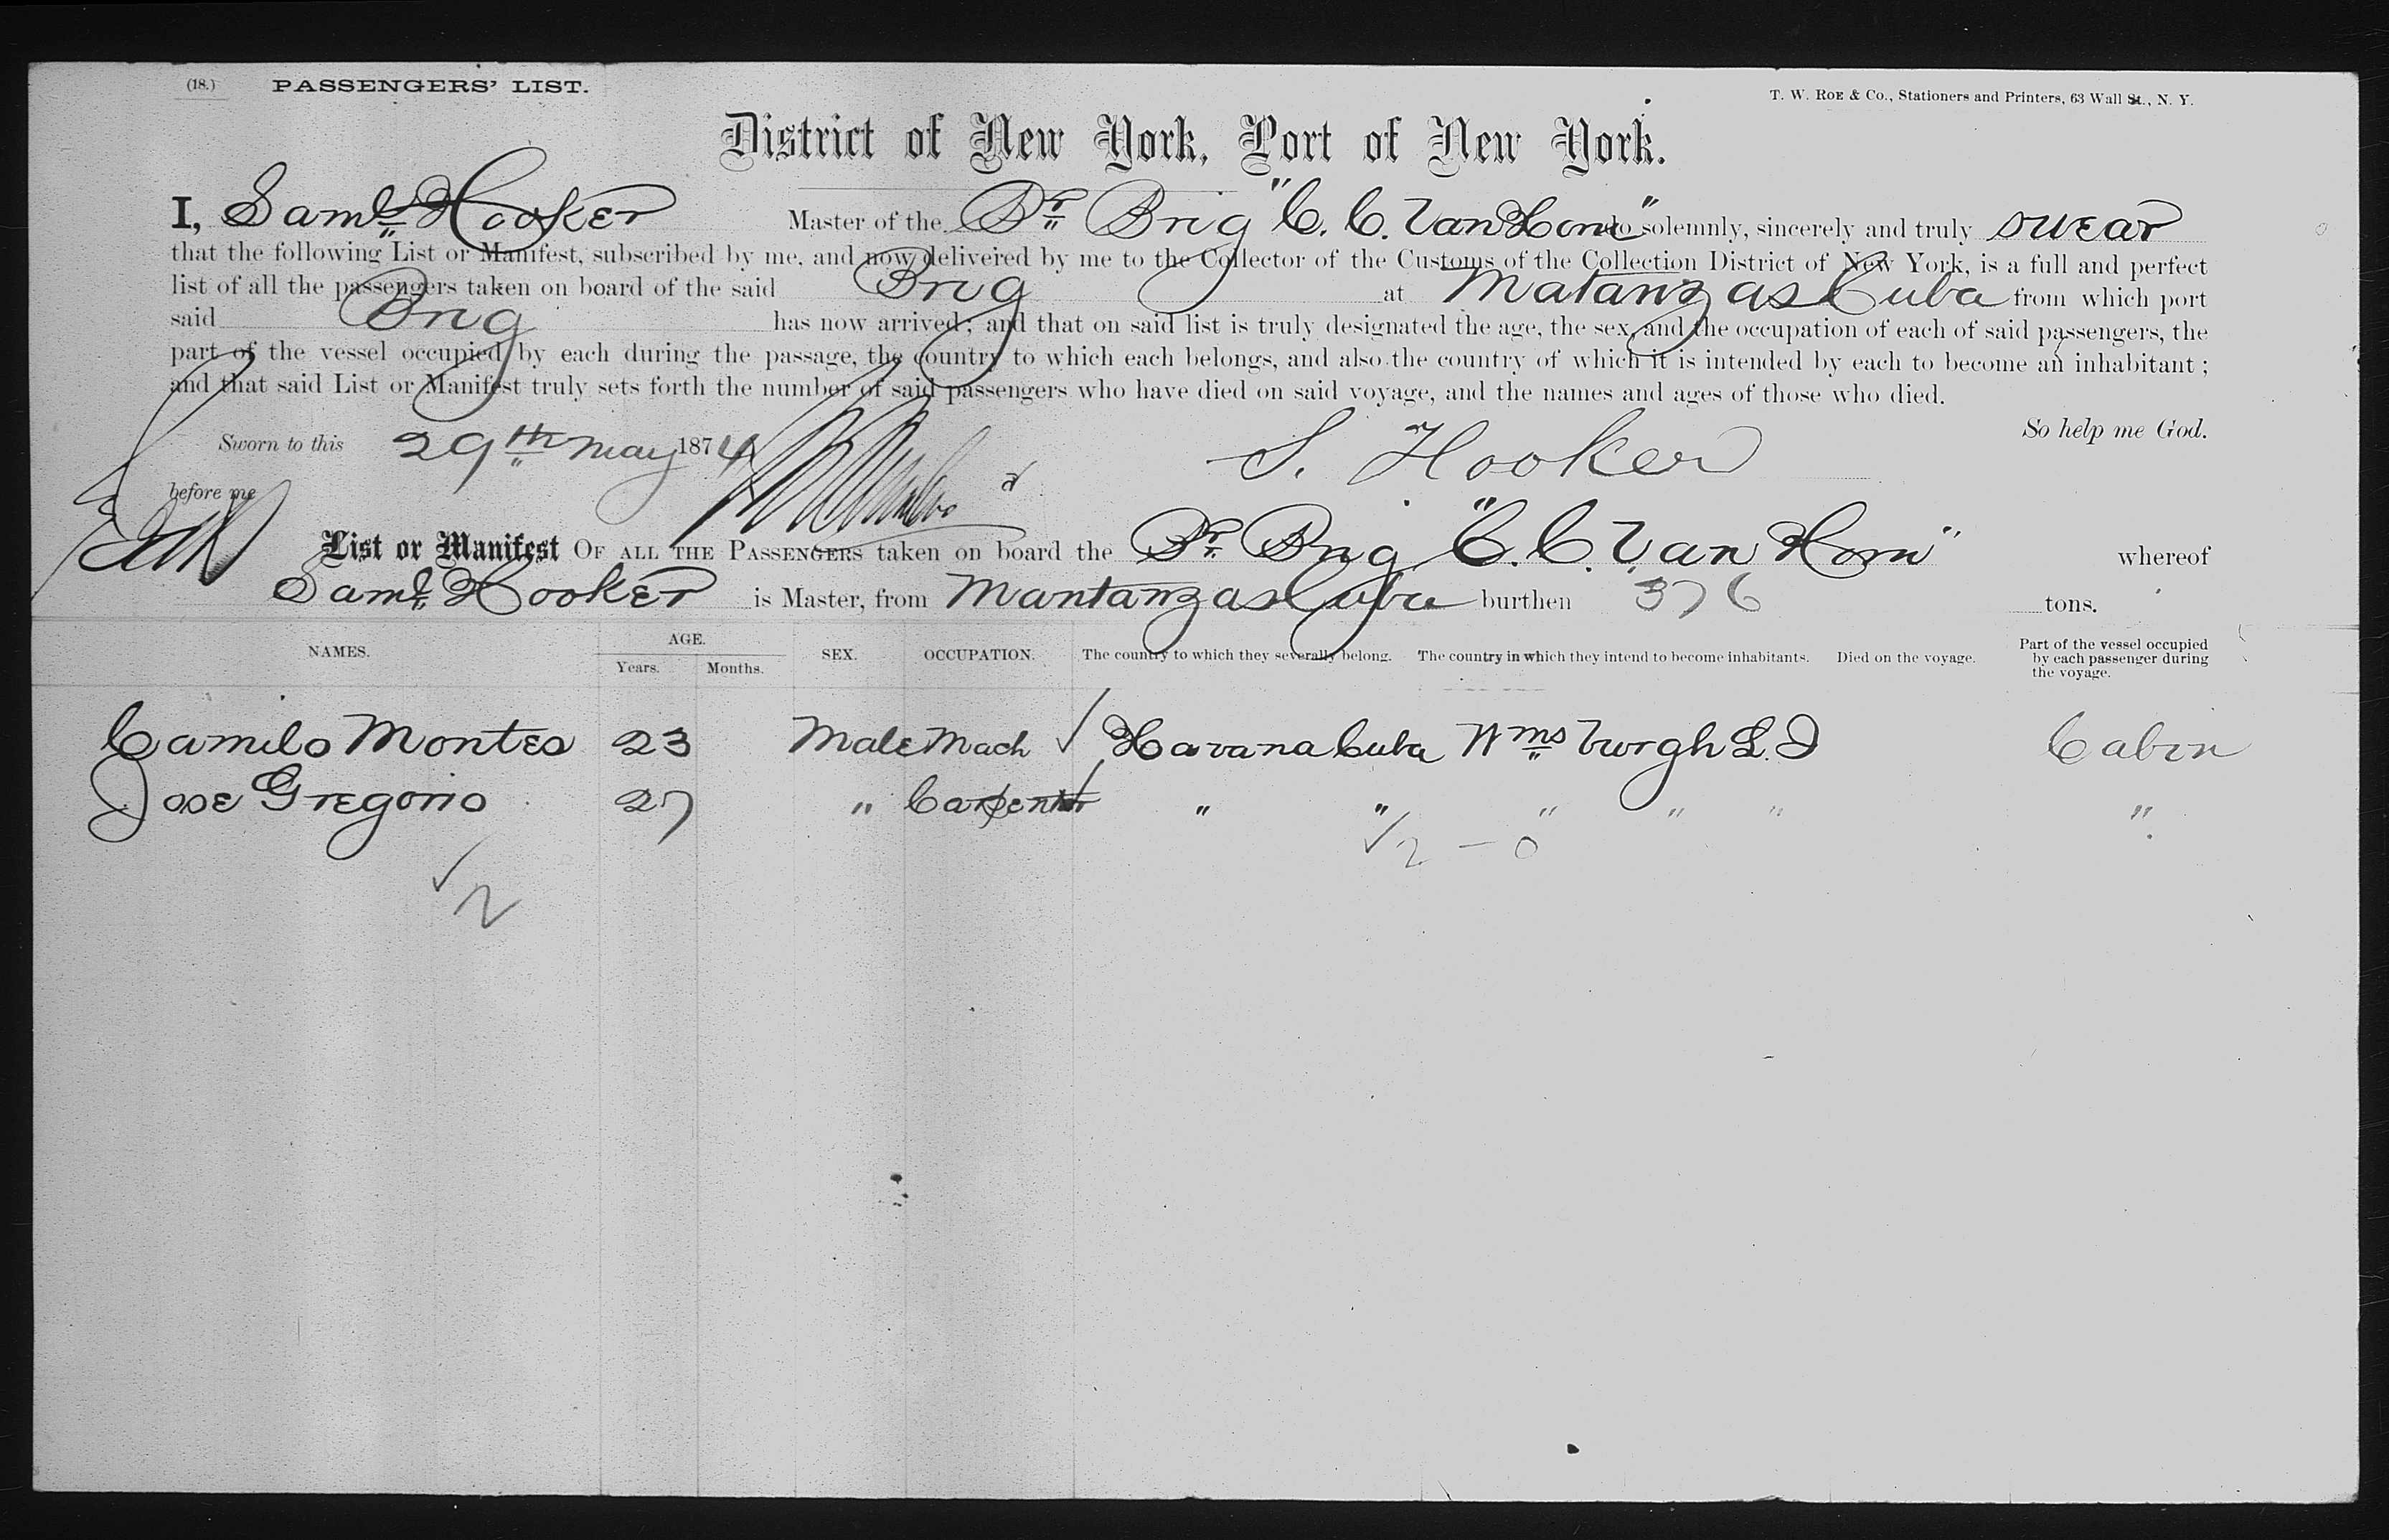 (18.) PASSENGERS' LIST.
T. W. ROE & Co., Stationers and Printers, 63 Wall St., N. Y.
District of New York, Port of New York.
I, Saml Hooker Master of the Br Brig "C. C. Van Horn" do solemnly, sincerely and truly swear
that the following List or Manifest, subscribed by me, and now delivered by me to the Collector of the Customs of the Collection District of New York, is a full and perfect
list of all the passengers taken on board of the said Brig at Matanzas Cuba from which port
said Brig has now arrived; and that on said list is truly designated the age, the sex, and the occupation of each of said passengers, the
part of the vessel occupied by each during the passage, the country to which each belongs, and also the country of which it is intended by each to become an inhabitant;
and that said List or Manifest truly sets forth the number of said passengers who have died on said voyage, and the names and ages of those who died.
So help me God.
Sworn to this 29th May 1874 S. Hooker
before me
List or Manifest OF ALL THE PASSENGERS taken on board the Br. Brig "C. C. Van Horn" whereof
Saml Hooker is Master, from Mantanzas Cuba burthen 376 tons.
NAMES. AGE. Years. Months. SEX. OCCUPATION. The country to which they severally belong. The country in which they intend to become inhabitants. Died on the voyage. Part of the vessel occupied by each passenger during the voyage.
Camilo Montes 23 Male Mach ✓ Havana Cuba Wms burgh L. I Cabin
Jose Gregorio 27 " Carpenter ✓ " " " " " "
✓ 2 — 0
✓ 2